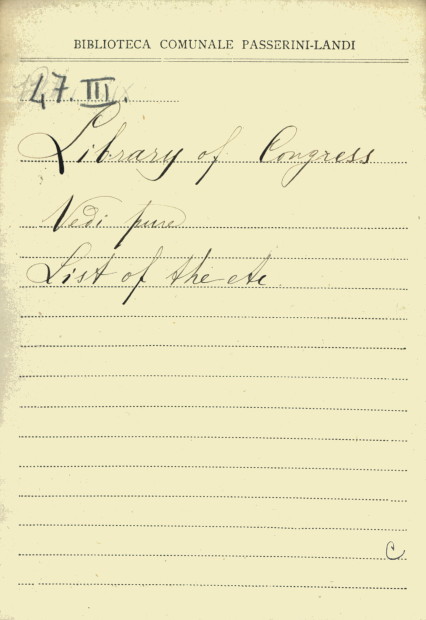 BIBLIOTECA COMUNALE PASSERINI-LANDI
47. III.
Library of Congress
Vedi pure
List of the etc
C